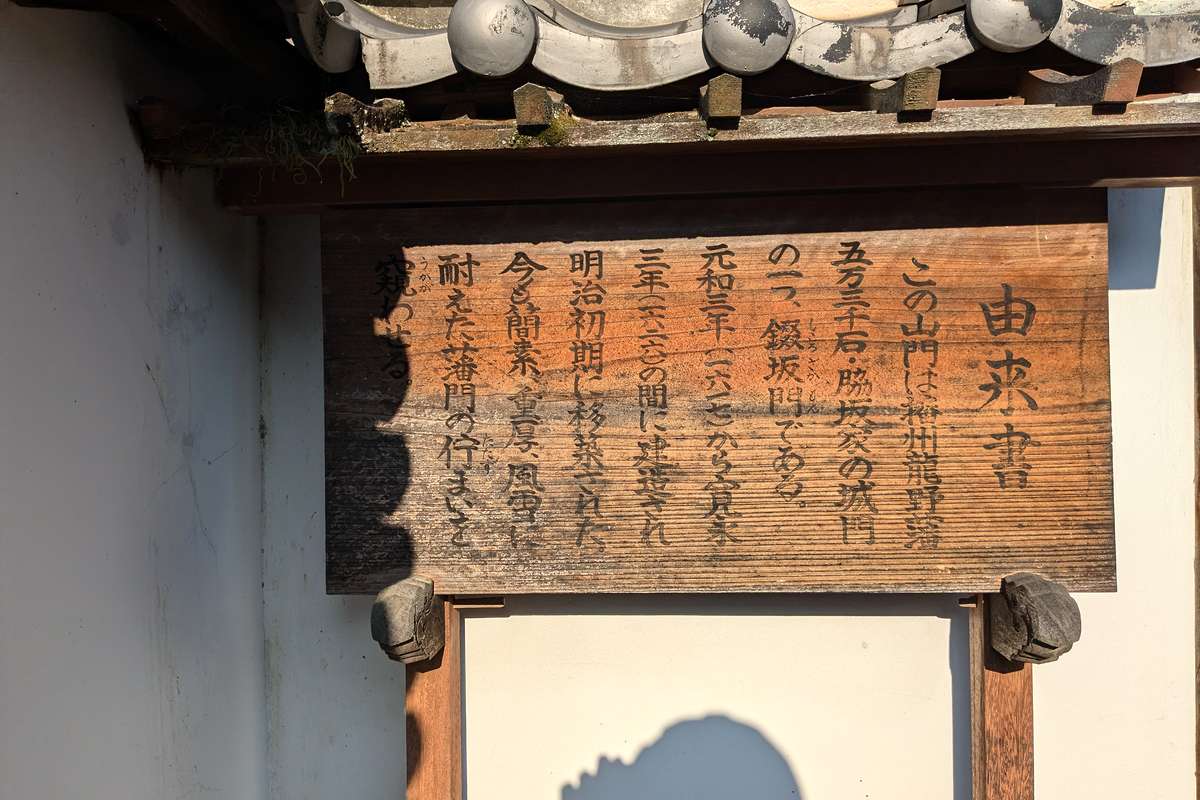 由来書
この山門は播州龍野藩
五万三千石・脇坂家の城門
の一つ、錣坂門である。
元和三年(一六一七)から寛永
三年(一六二六)の間に建造され
明治初期に移築された。
今も簡素、重厚、風雪に
耐えた藩門の佇まいを
窺わせる。